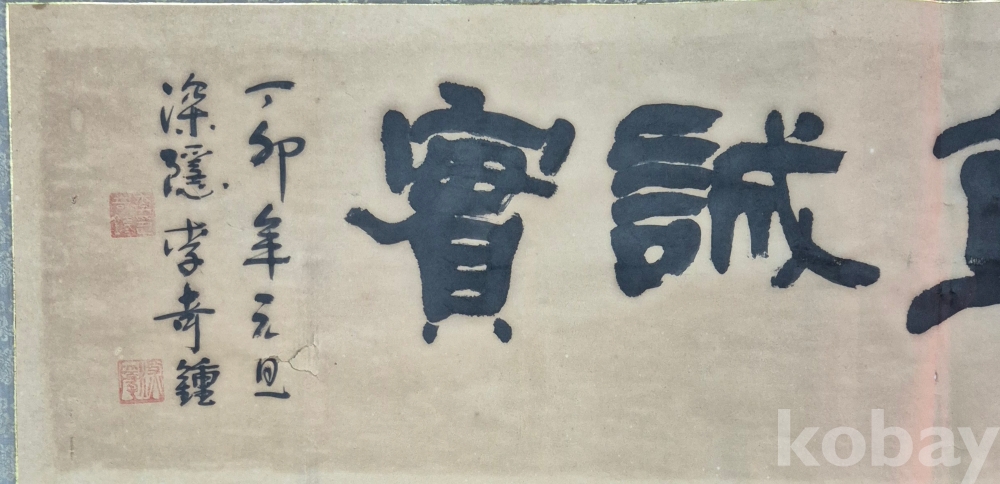 誠實
丁卯年元旦
深隱李奇鍾
kobay